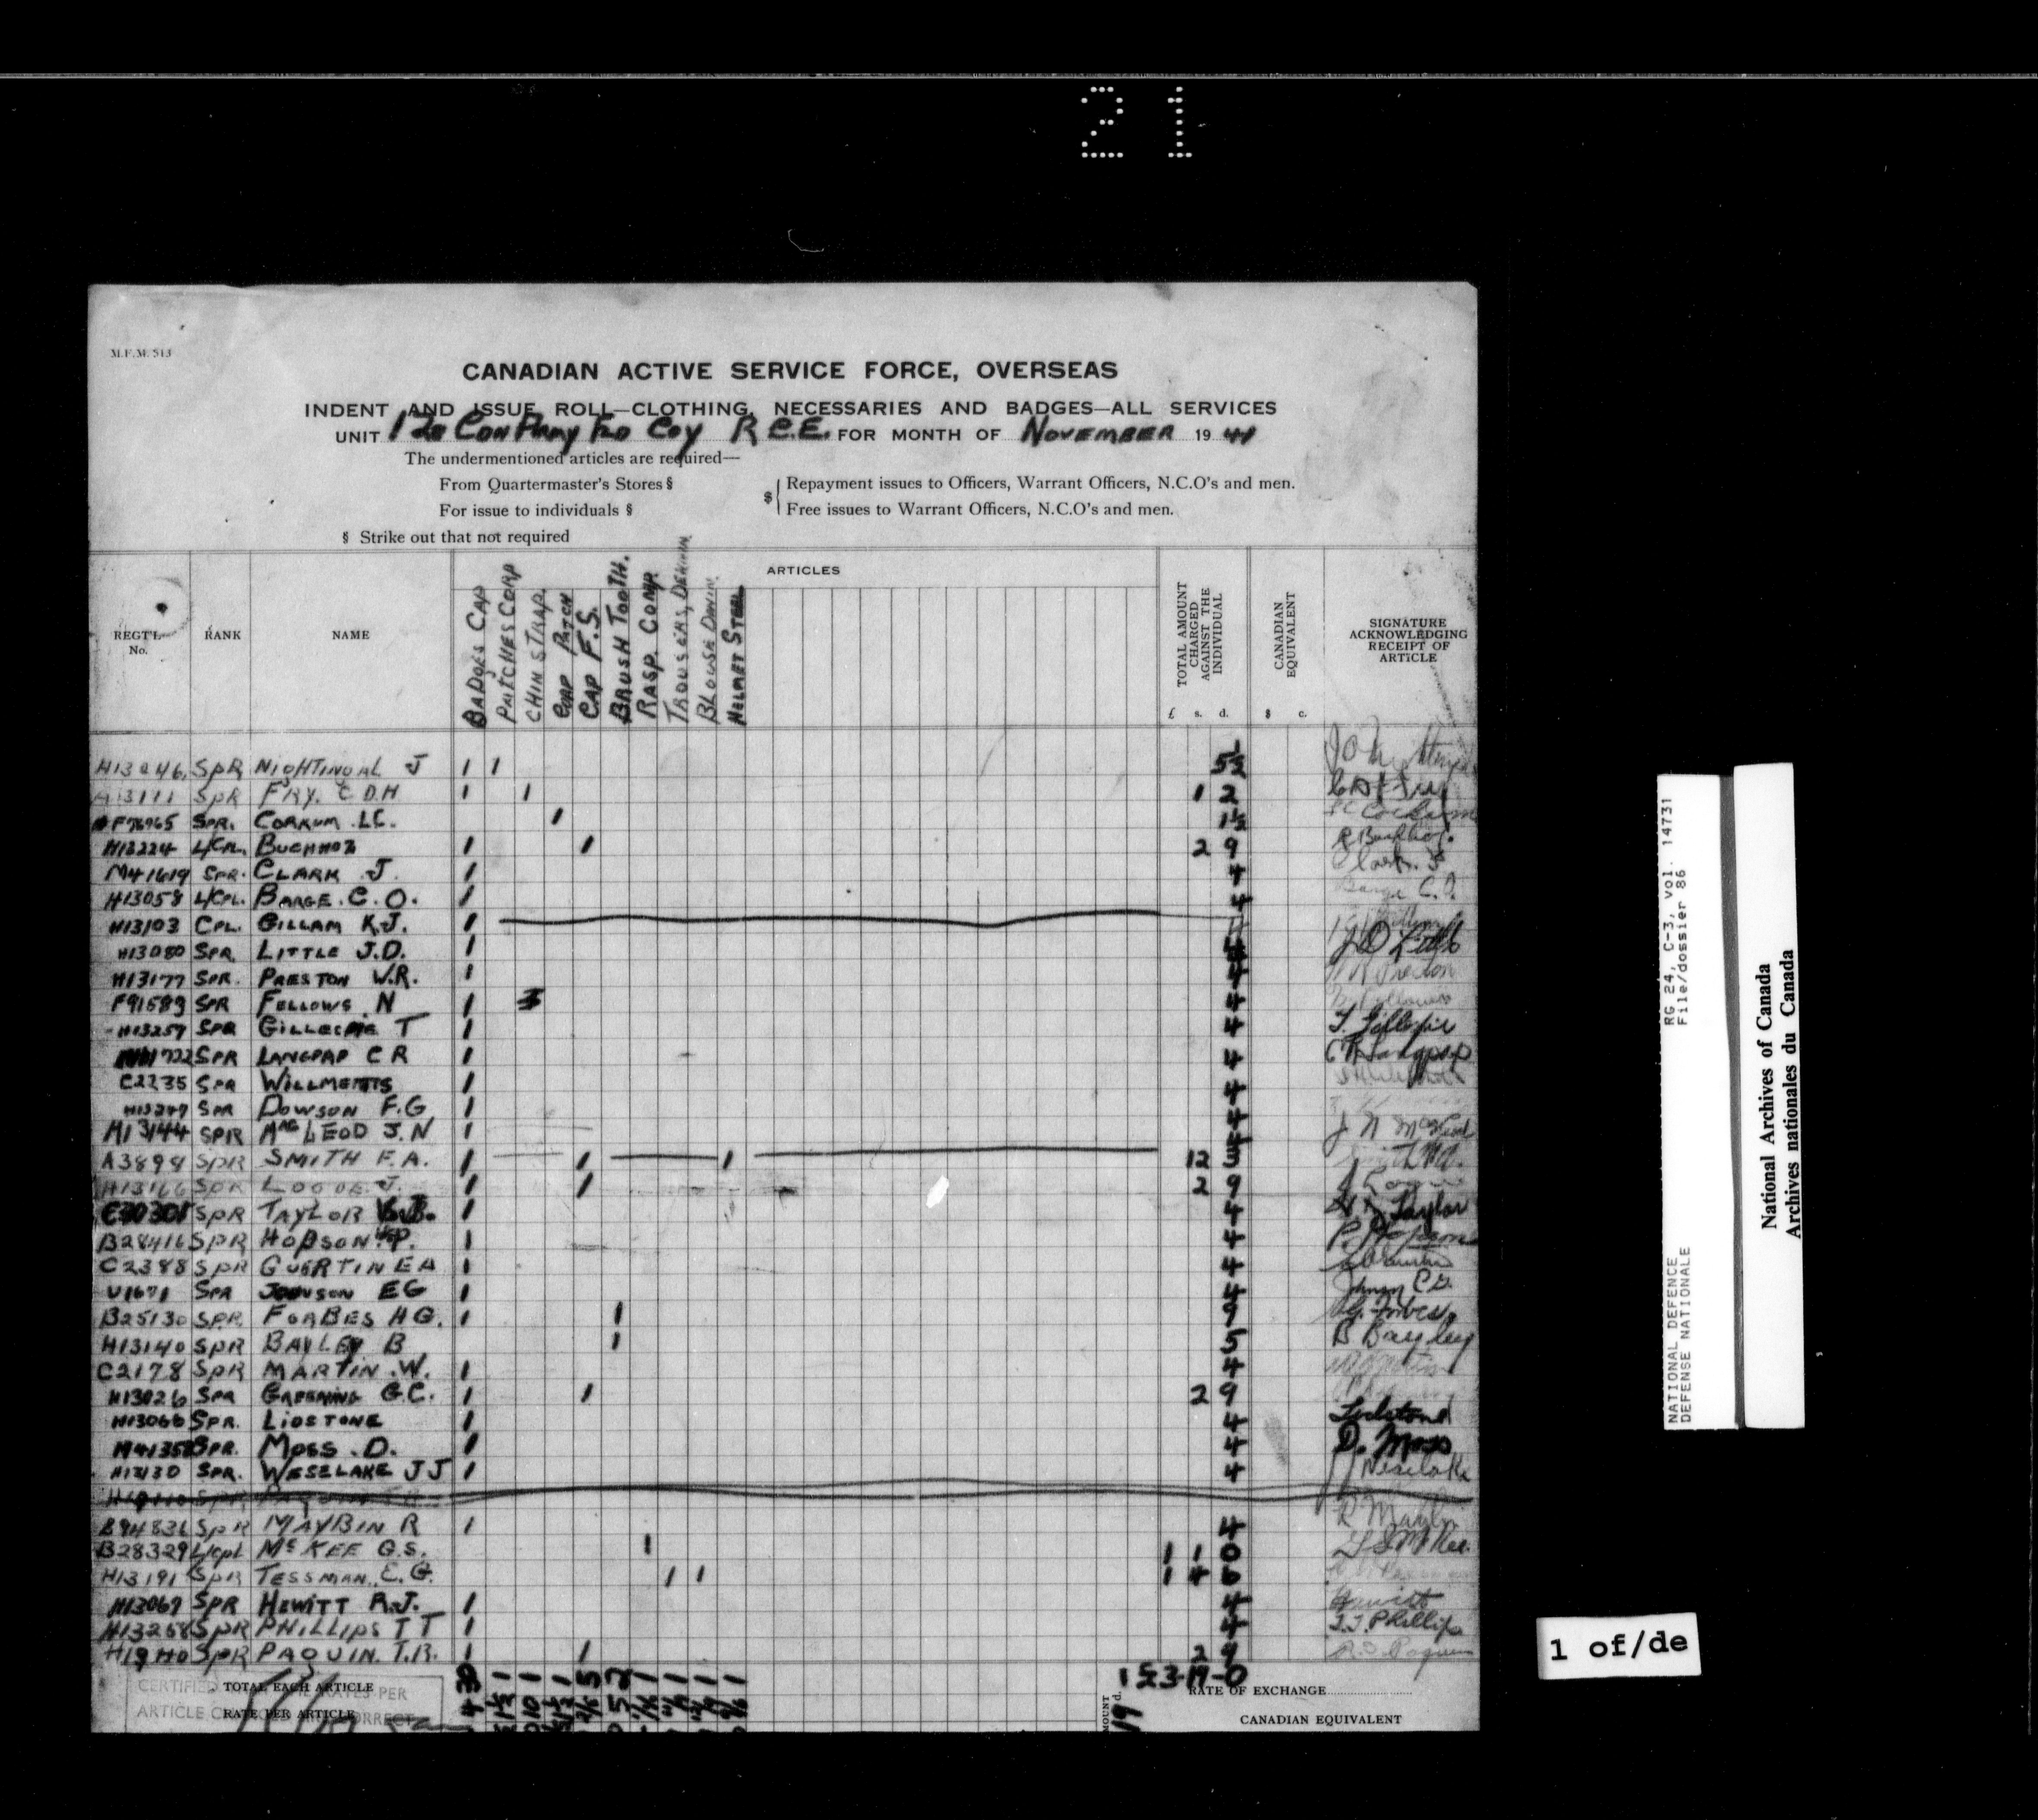 21
M.F.M. 513
CANADIAN ACTIVE SERVICE FORCE, OVERSEAS
INDENT AND ISSUE ROLL—CLOTHING, NECESSARIES AND BADGES—ALL SERVICES
UNIT 12 Company Coy R.C.E. FOR MONTH OF NOVEMBER 19 41
The undermentioned articles are required—
From Quartermaster's Stores §
For issue to individuals §
§ { Repayment issues to Officers, Warrant Officers, N.C.O's and men.
Free issues to Warrant Officers, N.C.O's and men.
§ Strike out that not required
REGT'L No. RANK NAME ARTICLES TOTAL AMOUNT CHARGED AGAINST THE INDIVIDUAL £ s. d. CANADIAN EQUIVALENT $ c. SIGNATURE ACKNOWLEDGING RECEIPT OF ARTICLE
BADGES CAP
PATCHES CORP
CHIN STRAP
PATCH
CAP F.S.
BRUSH TOOTH.
RASP. COMP.
TROUSERS, DENIM
BLOUSE DENIM
HELMET STEEL
H13046 SPR NIGHTINGAL J 1 1 5½
H13111 SPR FRY. C D.H 1 1 1 2
F76965 SPR. CORKUM L.C. 1 1½
H13224 L/CPL. BUCHHOZ 1 1 2 9 R Buchhoz.
M41619 SPR. CLARK J. 1 4 Clark. J
H13058 L/CPL. BARGE. C. O. 1 4 Barge C.O.
H13103 CPL. GILLAM K.J. 1 4
H13080 SPR. LITTLE J.D. 1 4 J D Little
H13177 SPR. PRESTON W.R. 1 4 W R Preston
F91689 SPR FELLOWS N 1 4
H13257 SPR GILLESPIE T 1 4 T. Gillespie
722 SPR LANGPAP C R 1 4 C R Langpap
C2235 SPR WILLMETTS 1 4
H13247 SPR DOWSON F.G 1 4
H13144 SPR MacLEOD J.N 1 4 J N McLeod
A3898 SPR SMITH F.A. 1 1 1 12 3
H13166 SPR LOGUE J. 1 1 2 9
C30301 SPR TAYLOR 1 4 Taylor
B28416 SPR HOPSON P. 1 4 P. Hopson
C2388 SPR GUERTIN E A 1 4
U1671 SPR JOHNSON EG 1 4 Johnson E G.
B25130 SPR. FORBES H G. 1 1 9 H G. Forbes.
H13140 SPR BAYLEY B 1 5 B Bayley
C2178 SPR MARTIN .W. 1 4
H13026 SPR GREENING G.C. 1 1 2 9
H13066 SPR. LIDSTONE 1 4 Lidstone
M41358 SPR. MOSS . D. 1 4 D. Moss
H13130 SPR. WESELAKE J J 1 4 J J Weselake
B94836 SPR MAYBIN R 1 4 R Maybin
B28329 L/Cpl McKEE G.S. 1 1 1 0 G S McKee.
H13191 SPR TESSMAN. E. G. 1 1 1 4 6
H13069 SPR HEWITT R.J. 1 4 Hewitt
H13258 SPR PHILLIPS T T 1 4 T.T. Phillips
H19110 SPR PAQUIN. T.R. 1 1 2 9
TOTAL EACH ARTICLE
RATE PER ARTICLE
CERTIFIED RATES PER
ARTICLE CORRECT
RATE OF EXCHANGE
CANADIAN EQUIVALENT
RG 24, C-3, vol. 14731
File/dossier 86
NATIONAL DEFENCE
DEFENSE NATIONALE
National Archives of Canada
Archives nationales du Canada
1 of/de